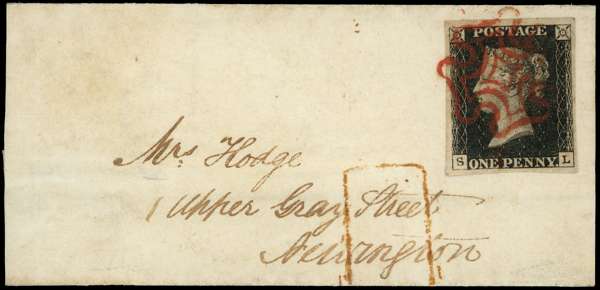 POSTAGE
S ONE PENNY L
Mrs Hodge
1 Upper Gray Street
Newington